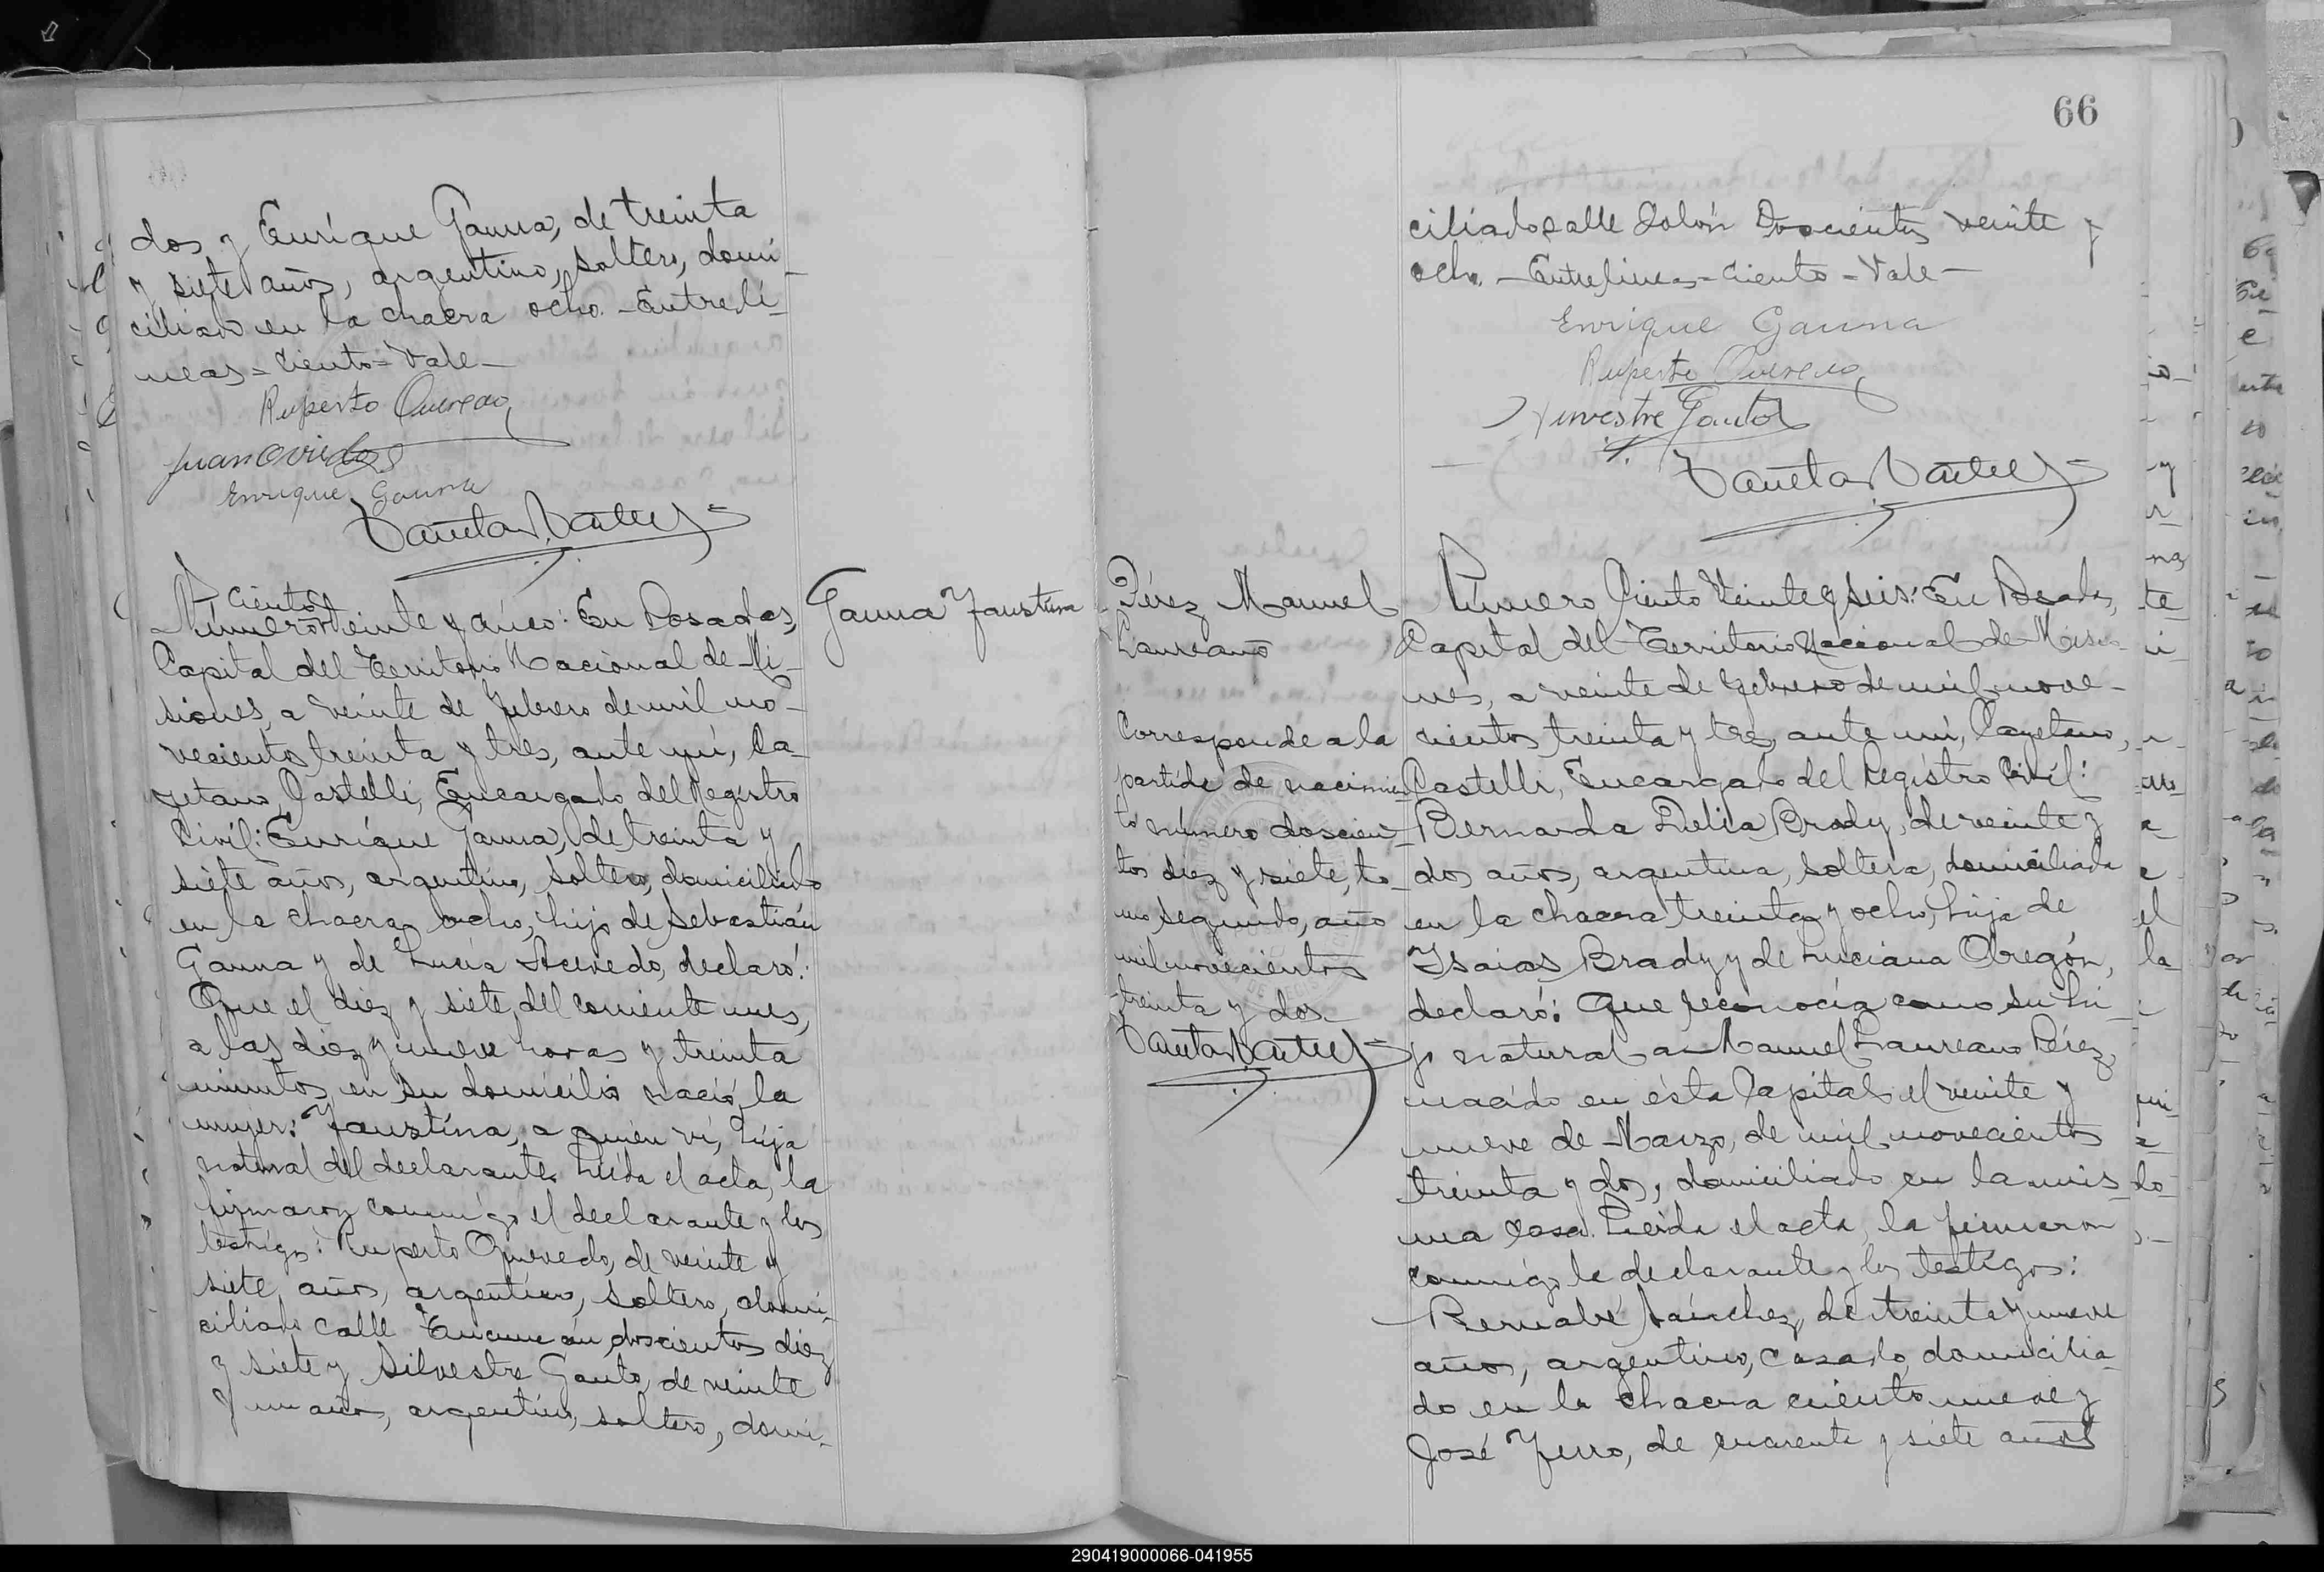 dos y Enrique Gauna, de treinta
y siete años, argentino, soltero, domi
ciliado en la chacra ocho. - Entrelí-
neas = ciento = Vale -
Ruperto Quevedo
Juan Oviedo
Enrique Gauna
Gauna Faustina
ciento
Número veinte y cinco: En Posadas,
Capital del Territorio Nacional de Mi-
siones, a veinte de Febrero de mil no-
vecientos treinta y tres, ante mí, Ca-
yetano Castelli, Encargado del Registro
Civil: Enrique Gauna, de treinta y
siete años, argentino, soltero, domiciliado
en la chacra ocho, hijo de Sebastián
Gauna y de Lucía Acevedo, declaró:
Que el diez y siete del corriente mes,
a las diez y nueve horas y treinta
minutos, en su domicilio nació la
mujer: Faustina, a quien ví, hija
natural del declarante. Leída el acta, la
firmaron conmigo el declarante y los
testigos: Ruperto Quevedo, de veinte y
siete años, argentino, soltero, domi-
ciliado calle Tucumán doscientos diez
y siete y Silvestre Gauto, de veinte
y un años, argentino, soltero, domi-
66
ciliado calle Colón Doscientos veinte y
ocho. - Entrelíneas = ciento = Vale -
Enrique Gauna
Ruperto Quevedo
Silvestre Gauto
Pérez Manuel
Laureano
Corresponde a la
partida de nacimien-
to número doscien-
tos diez y siete, to-
mo segundo, año
mil novecientos
treinta y dos
Número Ciento Veinte y seis: En Posadas,
Capital del Territorio Nacional de Misio-
nes, a veinte de Febrero de mil nove-
cientos treinta y tres, ante mí, Cayetano
Castelli, Encargado del Registro Civil:
Bernarda Delia Brady, de veinte y
dos años, argentina, soltera, domiciliada
en la chacra treinta y ocho, hija de
Isaías Brady y de Luciana Obregón,
declaró: Que reconocía como su hi-
jo natural a Manuel Laureano Pérez,
nacido en ésta Capital el veinte y
nueve de Marzo, de mil novecientos
treinta y dos, domiciliado en la mis-
ma casa. Leída el acta, la firmaron
conmigo la declarante y los testigos:
Bernabé Sánchez, de treinta y nueve
años, argentino, casado, domicilia-
do en la chacra ciento nueve y
José Fierro, de cuarenta y siete años
290419000066-041955